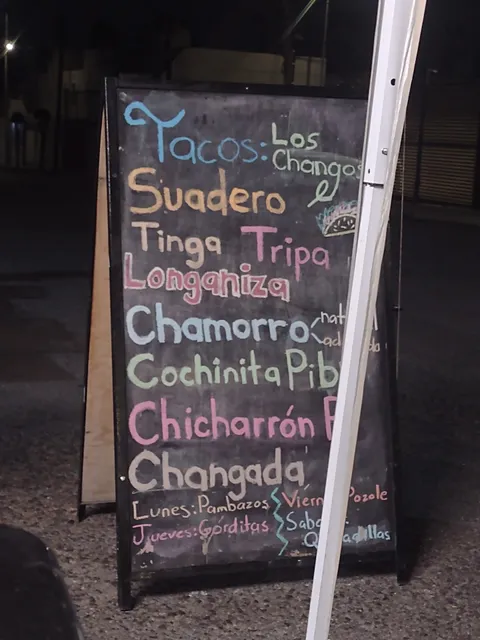 Tacos: Los
Chango
Suadero
Tinga Tripa
Longaniza
Chamorro
Cochinita Pib
Chicharrón
Changada
Lunes: Pambazos
Jueves: Gorditas
Viern Pozole
Sab